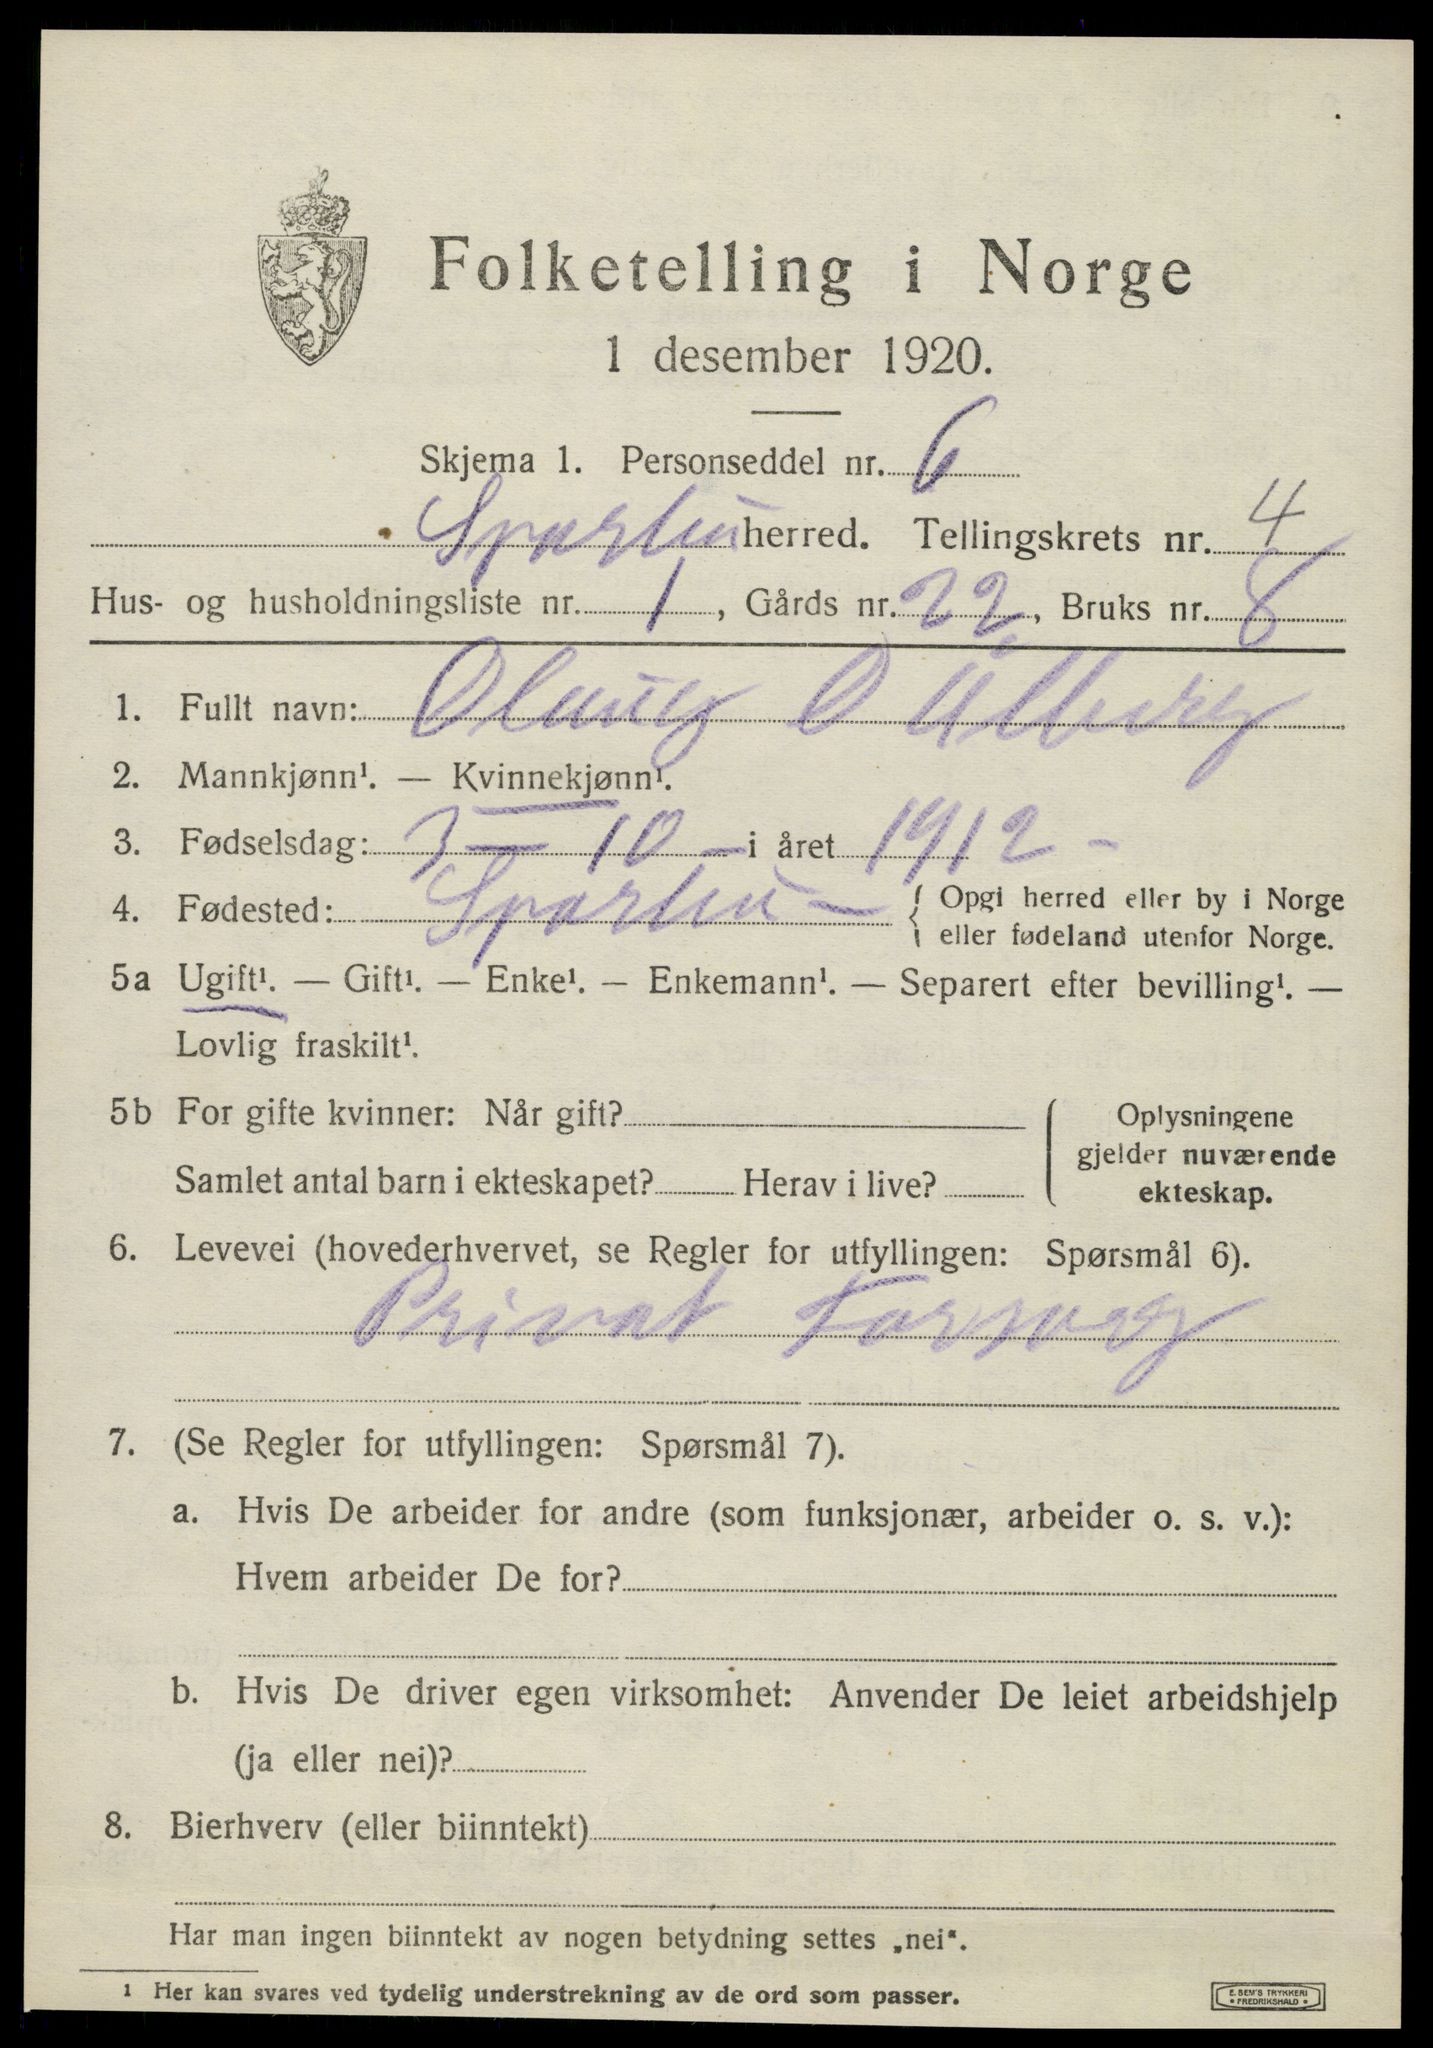 Folketelling i Norge
1 desember 1920.
Skjema 1. Personseddel nr. 6
Sparbu herred. Tellingskrets nr. 4
Hus- og husholdningsliste nr. 1, Gårds nr. 22, Bruks nr. 8
1. Fullt navn: Olaug O Ålberg
2. Mannkjønn¹. — Kvinnekjønn¹.
3. Fødselsdag: 3 — 10 — i året 1912 —
4. Fødested: Sparbu — { Opgi herred eller by i Norge
eller fødeland utenfor Norge.
5a Ugift¹. — Gift¹. — Enke¹. — Enkemann¹. — Separert efter bevilling¹. —
Lovlig fraskilt¹.
5b For gifte kvinner: Når gift?
Samlet antal barn i ekteskapet? Herav i live?
Oplysningene
gjelder nuværende
ekteskap.
6. Levevei (hovederhvervet, se Regler for utfyllingen: Spørsmål 6).
Privat Forsørg
7. (Se Regler for utfyllingen: Spørsmål 7).
a. Hvis De arbeider for andre (som funksjonær, arbeider o. s. v.):
Hvem arbeider De for?
b. Hvis De driver egen virksomhet: Anvender De leiet arbeidshjelp
(ja eller nei)?
8. Bierhverv (eller biinntekt)
Har man ingen biinntekt av nogen betydning settes „nei“.
1 Her kan svares ved tydelig understrekning av de ord som passer.
E. SEM'S TRYKKERI
• FREDRIKSHALD •